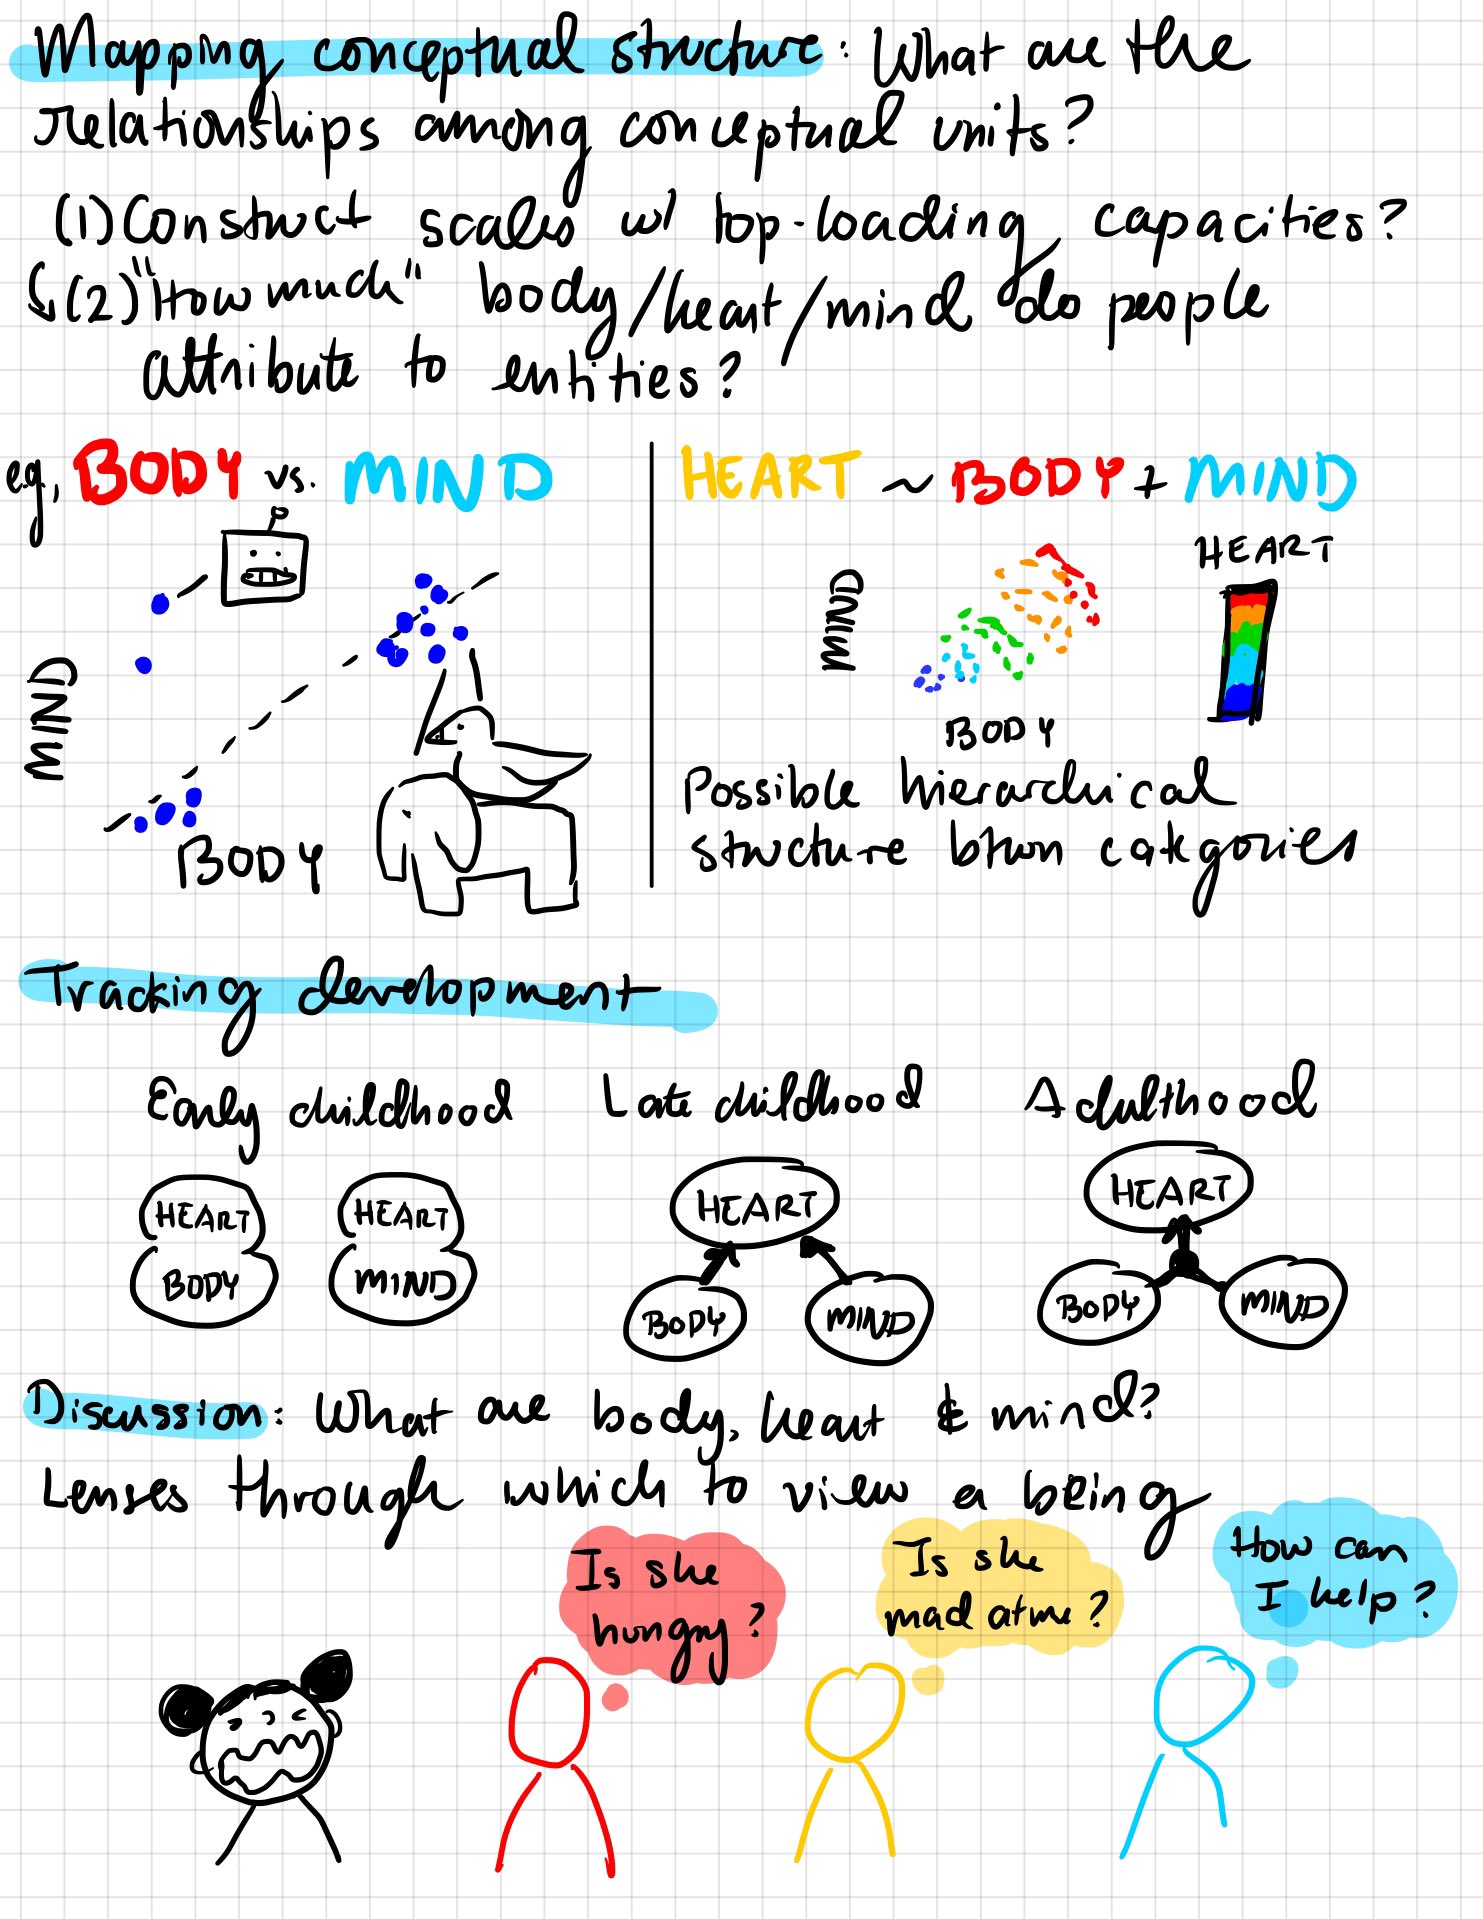 Mapping conceptual structure: What are the
relationships among conceptual units?
(1) Construct scales w/ top-loading capacities?
(2) "How much" body/heart/mind do people
attribute to entities?
e.g, BODY vs. MIND
MIND
BODY
HEART ~ BODY + MIND
HEART
MIND
BODY
Possible hierarchical
structure btwn categories
Tracking development
Early childhood
HEART
BODY
HEART
MIND
Late childhood
HEART
BODY
MIND
Adulthood
HEART
BODY
MIND
Discussion: What are body, heart & mind?
Lenses through which to view a being
Is she
hungry?
Is she
mad at me?
How can
I help?